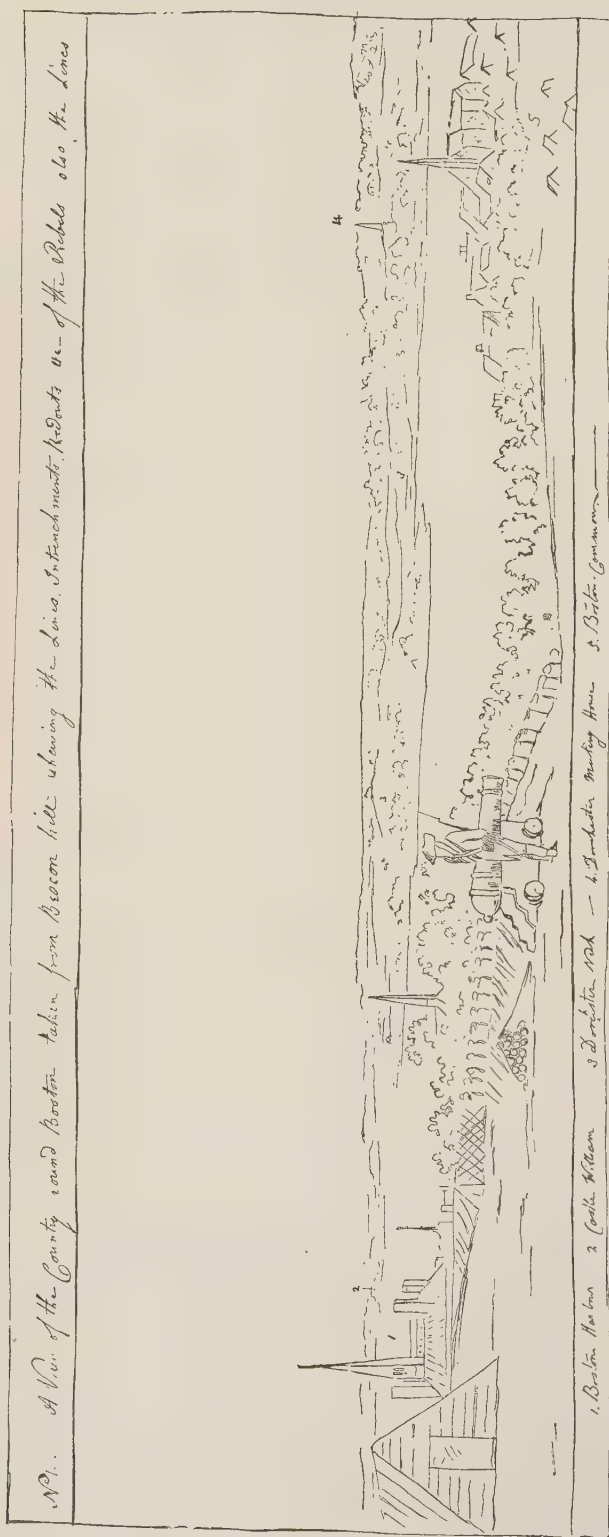 No 1.. A View of the Country round Boston taken from Beacon hill shewing the Lines, Intrenchments, Redouts &c - of the Rebels also the Lines
2
4
1
3
5
1. Boston Harbour 2 Castle William 3 Dorchester Neck — 4. Dorchester Meeting House 5. Boston Common